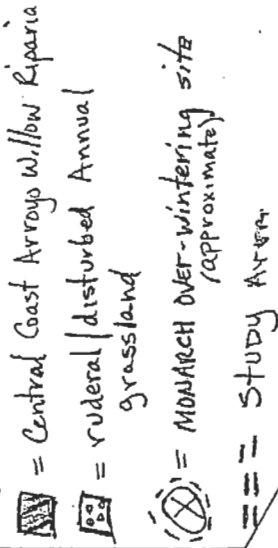 = Central Coast Arroyo Willow Riparia
= ruderal/disturbed Annual
grassland
= MONARCH OVER-wintering site
(approximate)
=== STUDY Area